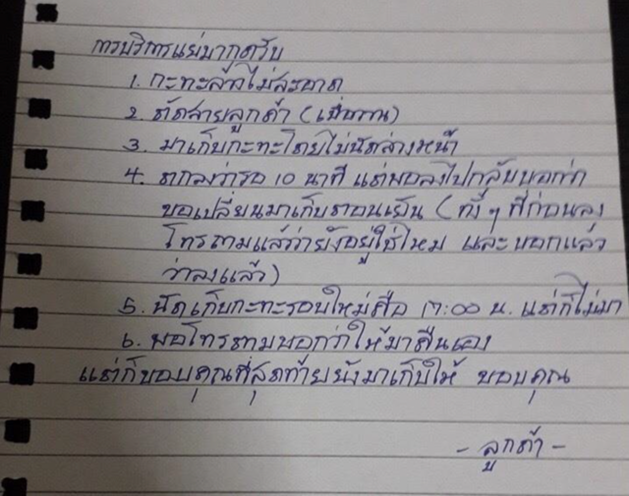 การบริการแย่มากครับ
1. กะทะล้างไม่สะอาด
2. ตัดสายลูกค้า (เมื่อวาน)
3. มาเก็บกะทะโดยไม่นัดล่วงหน้า
4. ตกลงว่ารอ 10 นาที แต่พอลงไปกลับบอกว่า
ขอเปลี่ยนมาเก็บตอนเย็น (ทั้งๆ ที่ก่อนลง
โทรถามแล้วว่ายังอยู่ใช่ไหม และบอกแล้ว
ว่าลงแล้ว)
5. นัดเก็บกะทะรอบใหม่คือ 17:00 น. แต่ก็ไม่มา
6. พอโทรถามบอกว่าให้มาคืนเอง
แต่ก็ขอบคุณที่สุดท้ายยังมาเก็บให้ ขอบคุณ
- ลูกค้า -